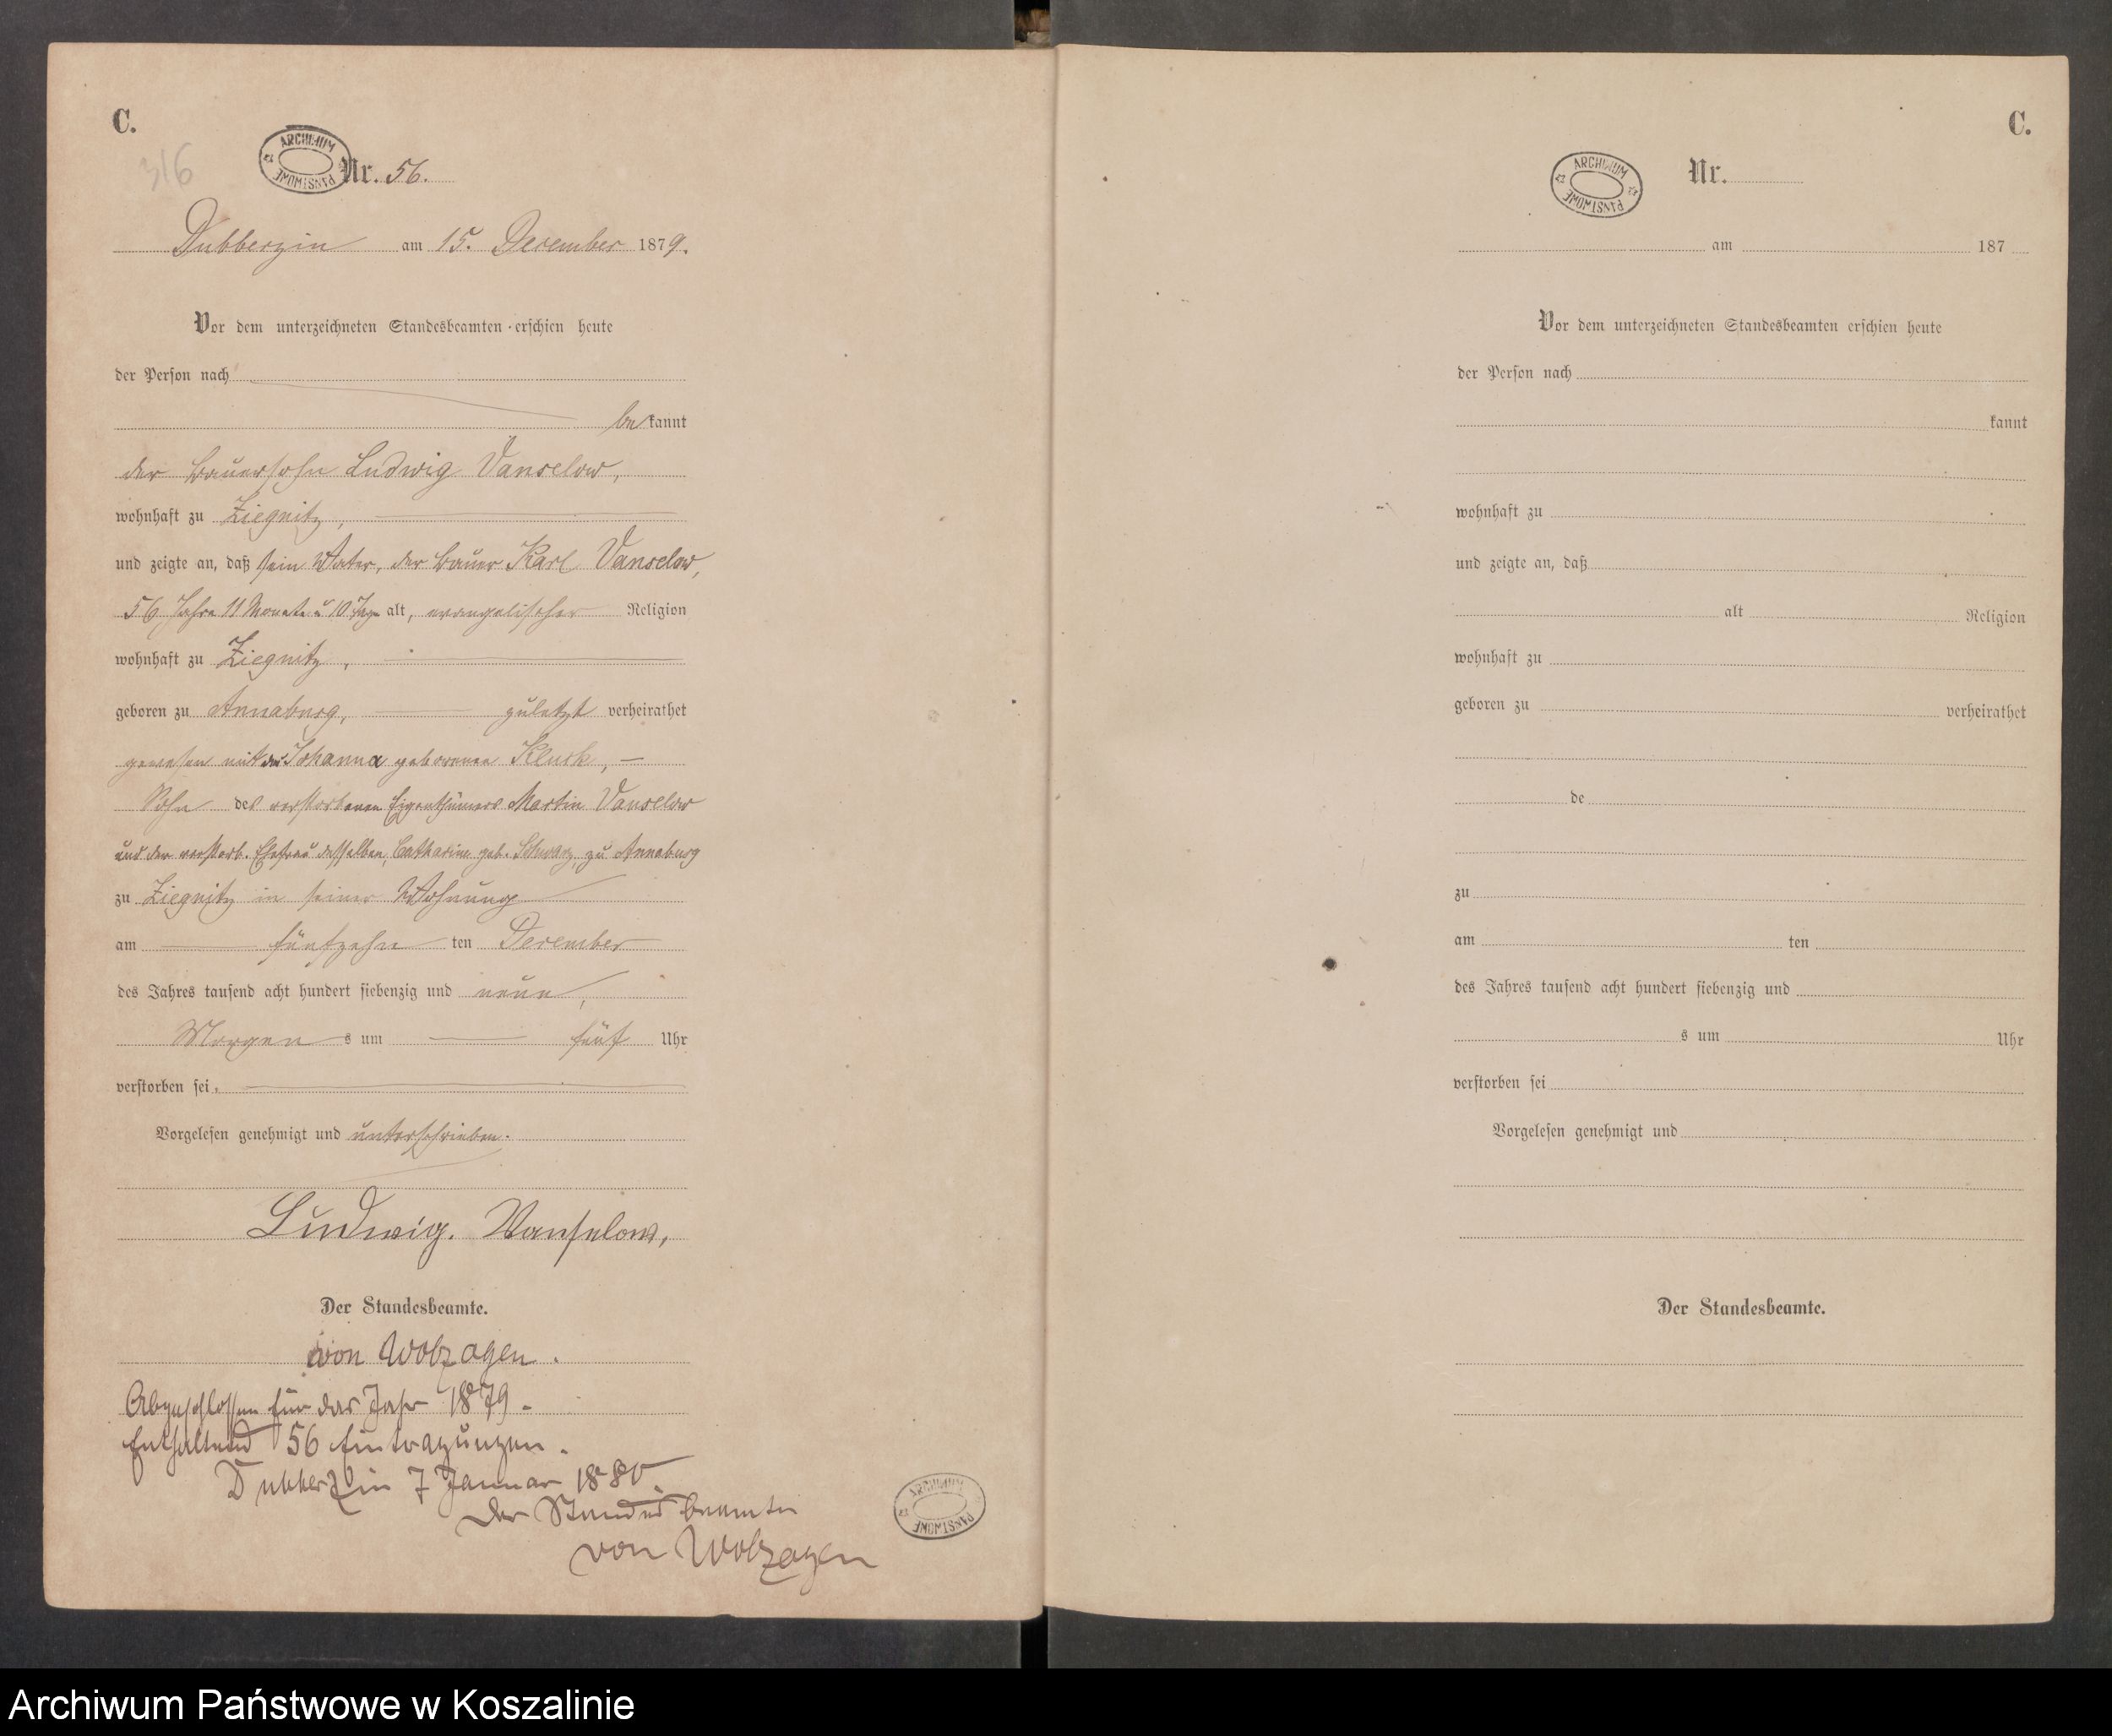 C.
316
ARCHIWUM PAŃSTWOWE
Nr. 56.
Dubberzin am 15. December 1879.
Vor dem unterzeichneten Standesbeamten erschien heute
der Person nach
bekannt
der Bauersohn Ludwig Vanselow,
wohnhaft zu Ziegnitz,
und zeigte an, daß sein Vater, der Bauer Karl Vanselow,
56 Jahre 11 Monate u 10 Tage alt, evangelischer Religion
wohnhaft zu Ziegnitz,
geboren zu Annaburg, zuletzt verheirathet
gewesen mit der Johanna geborenen
Sohn des verstorbenen Eigenthümers Martin Vanselow
und der verstorb. Ehefrau desselben, Catharine geb. Schwarz, zu Annaburg
zu Ziegnitz in seiner Wohnung
am fünfzehn ten December
des Jahres tausend acht hundert siebenzig und neun,
Morgen s um fünf Uhr
verstorben sei.
Vorgelesen genehmigt und unterschrieben.
Ludwig. Vanselow,
Der Standesbeamte.
von Wolzogen.
Abgeschlossen für das Jahr 1879.
Enthaltend 56 Eintragungen.
Dubberzin 7 Januar 1880.
Der Standesbeamte
von Wolzogen
ARCHIWUM PAŃSTWOWE
C.
ARCHIWUM PAŃSTWOWE
Nr.
am 187
Vor dem unterzeichneten Standesbeamten erschien heute
der Person nach
kannt
wohnhaft zu
und zeigte an, daß
alt Religion
wohnhaft zu
geboren zu verheirathet
de
zu
am ten
des Jahres tausend acht hundert siebenzig und
s um Uhr
verstorben sei
Vorgelesen genehmigt und
Der Standesbeamte.
Archiwum Państwowe w Koszalinie